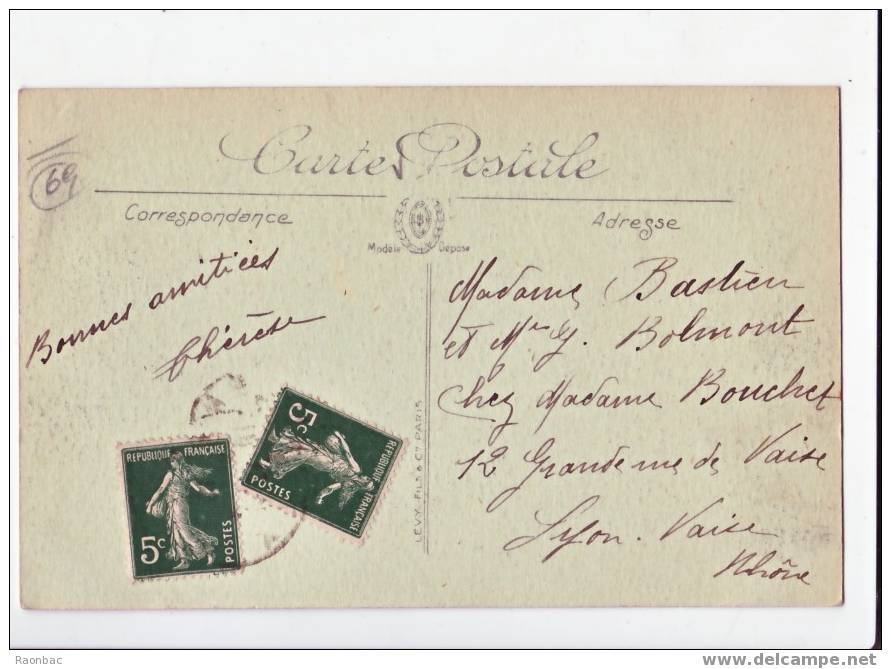 69
Carte Postale
Correspondance
Adresse
Modèle Déposé
Bonnes amitiées
Thérèse
Madame Bastien
et Mme G. Bolmont
chez Madame Bouchet
12 Grande rue de Vaise
Lyon-Vaise
Rhône
LEVY FILS & Cie PARIS
REPUBLIQUE FRANÇAISE
5c
POSTES
REPUBLIQUE FRANÇAISE
5c
POSTES
Raonbac
www.delcampe.net